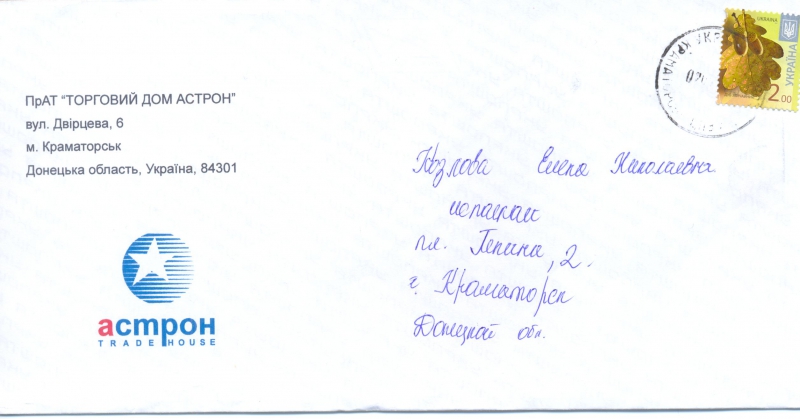 ПрАТ "ТОРГОВИЙ ДОМ АСТРОН"
вул. Двірцева, 6
м. Краматорськ
Донецька область, Україна, 84301
астрон
TRADE HOUSE
УКРАЇНА
UKRAINA
2.00
Козлова Елена Николаевна
исполком
пл. Ленина, 2.
г. Краматорск
Донецкой обл.